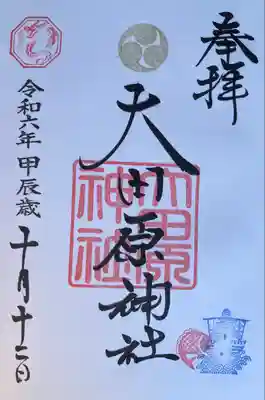 奉拝
大田原神社
大田原神社
令和六年甲辰歳十月十二日